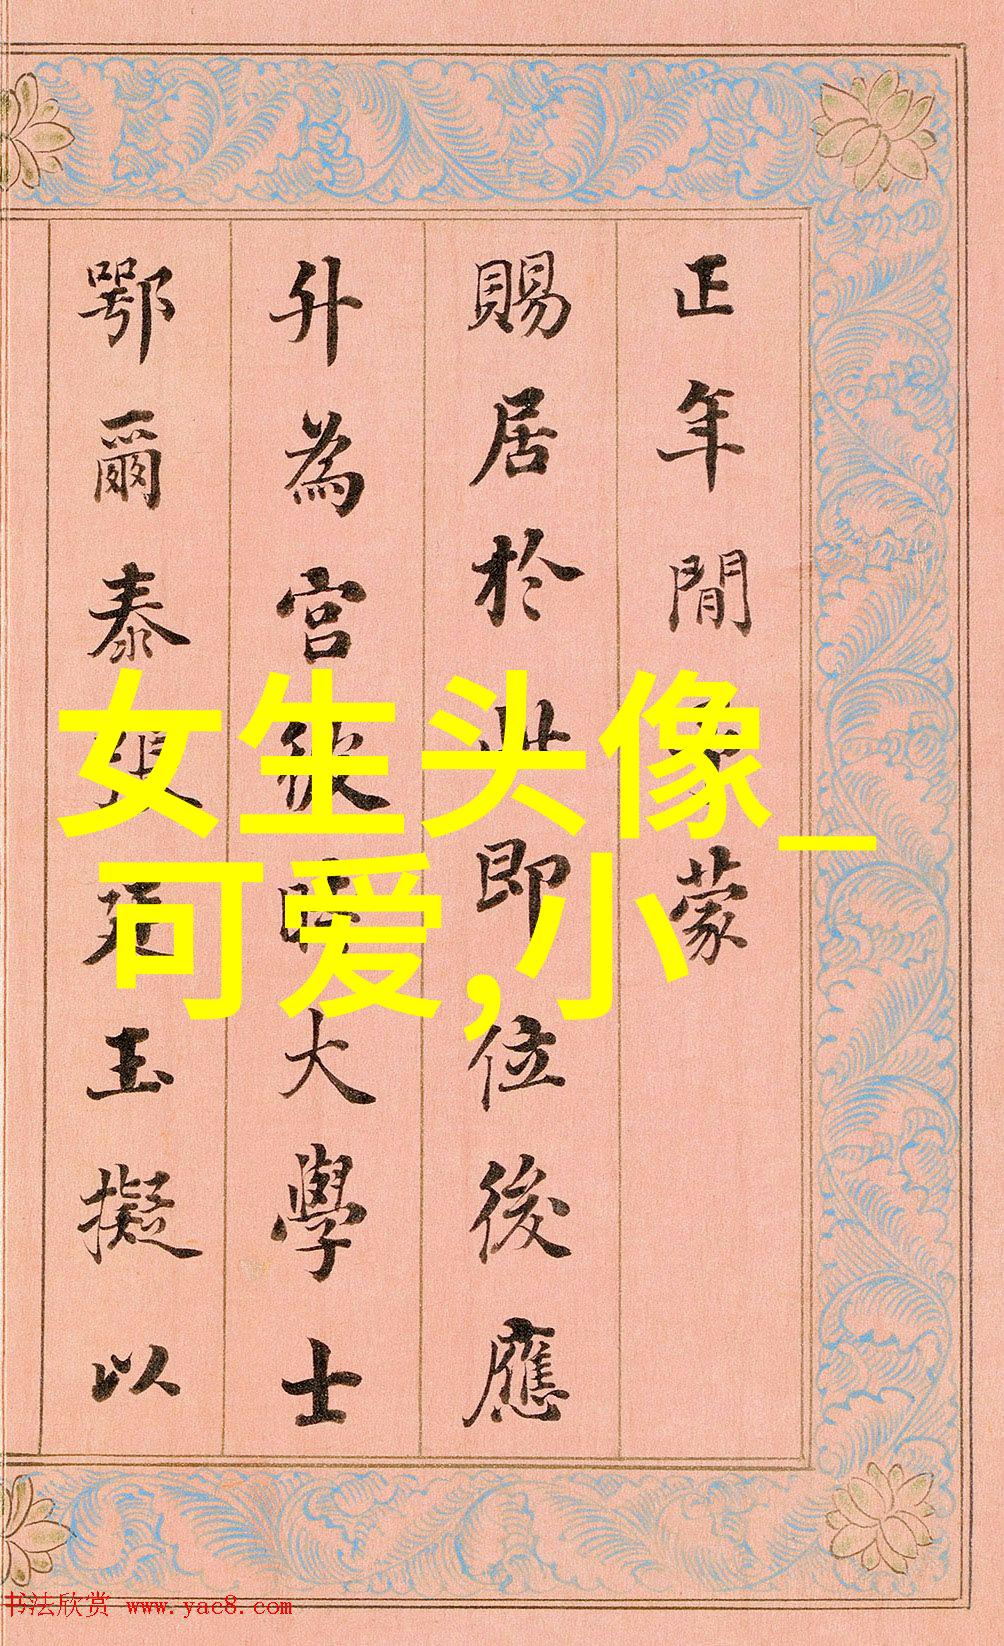 正年間蒙
賜居於此即位後應
升為宮後時大學士
鄂爾泰張廷玉擬以
女生头像_
可爱,小
书法欣赏 www.yac8.com